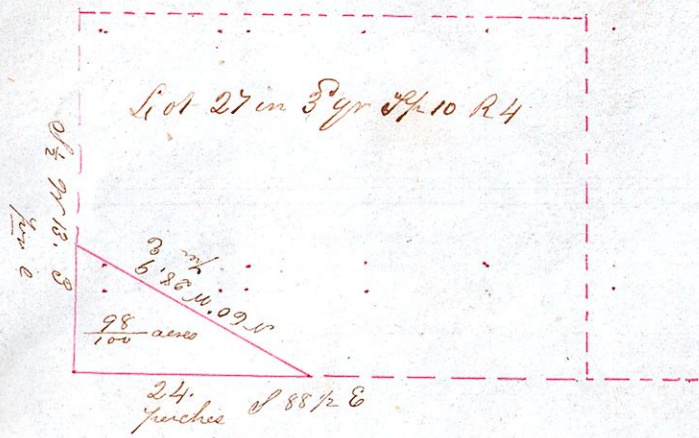 Lot 27 in 3d qr Tp 10 R 4
S ½ W 13. 3
per e
N 60. W 28. 9
per
98/100 acres
24. perches
S 88 ½ E